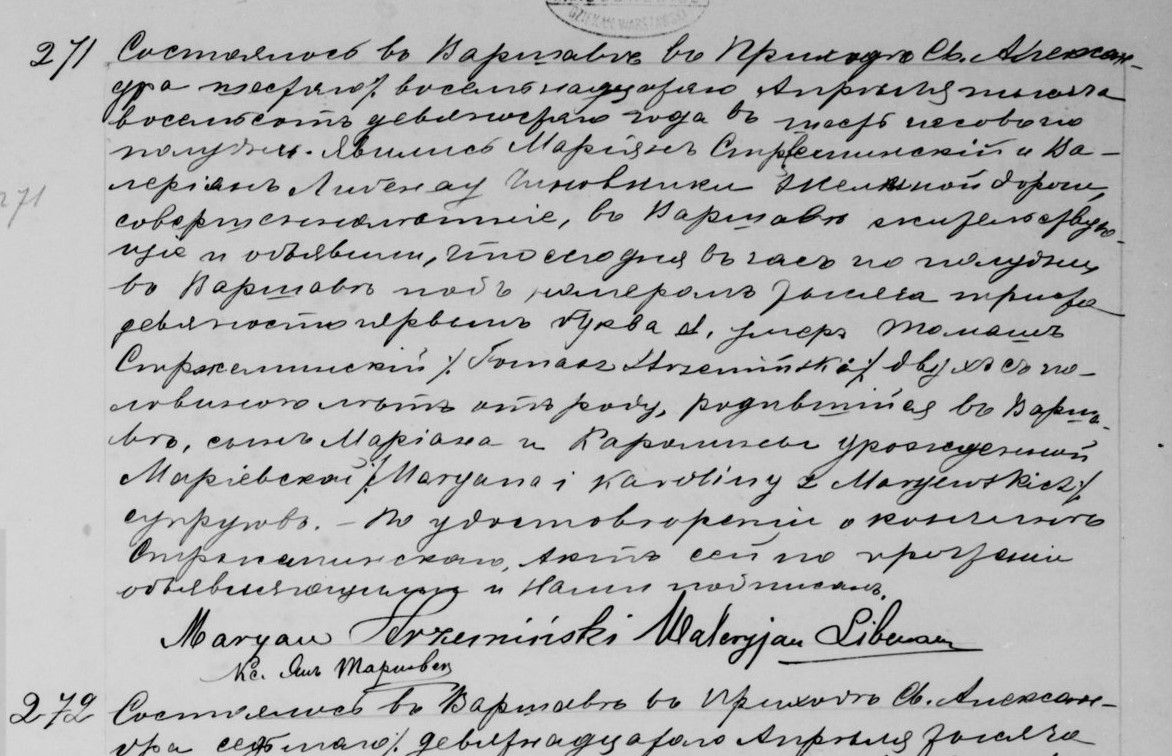 DZIEKAN WARSZAWSKI
271 Состоялось въ Варшавѣ въ Приходѣ Св. Алексан-
дра шестаго/ восемьнадцатаго Апрѣля тысяча
восемьсотъ девяностаго года въ шесть часовъ по
полудни. Явились Маріянъ Стржеминскій и Ва-
леріанъ Либенау чиновники желѣзной дороги,
совершеннолѣтніе, въ Варшавѣ жительствую-
щіе и объявили, что сегодня въ часъ по полудни
въ Варшавѣ подъ номеромъ тысяча триста
девяносто первымъ буква А, умеръ Томашъ
Стржеминскій /Tomasz Strzemiński/ двухъ съ по-
ловиною лѣтъ отъ роду, родившійся въ Варша-
вѣ, сынъ Маріана и Каролины урожденной
Маріевской /Maryana i Karoliny z Maryewskich/
супруговъ. – По удостовѣреніи о кончинѣ
Стржеминскаго, Актъ сей по прочтеніи
объявляющимъ и Нами подписанъ.
Maryan Strzemiński Waleryjan Libenau
Кс. Янъ
271
272 Состоялось въ Варшавѣ въ Приходѣ Св. Алексан-
дра седьмаго/ девятнадцатаго Апрѣля тысяча